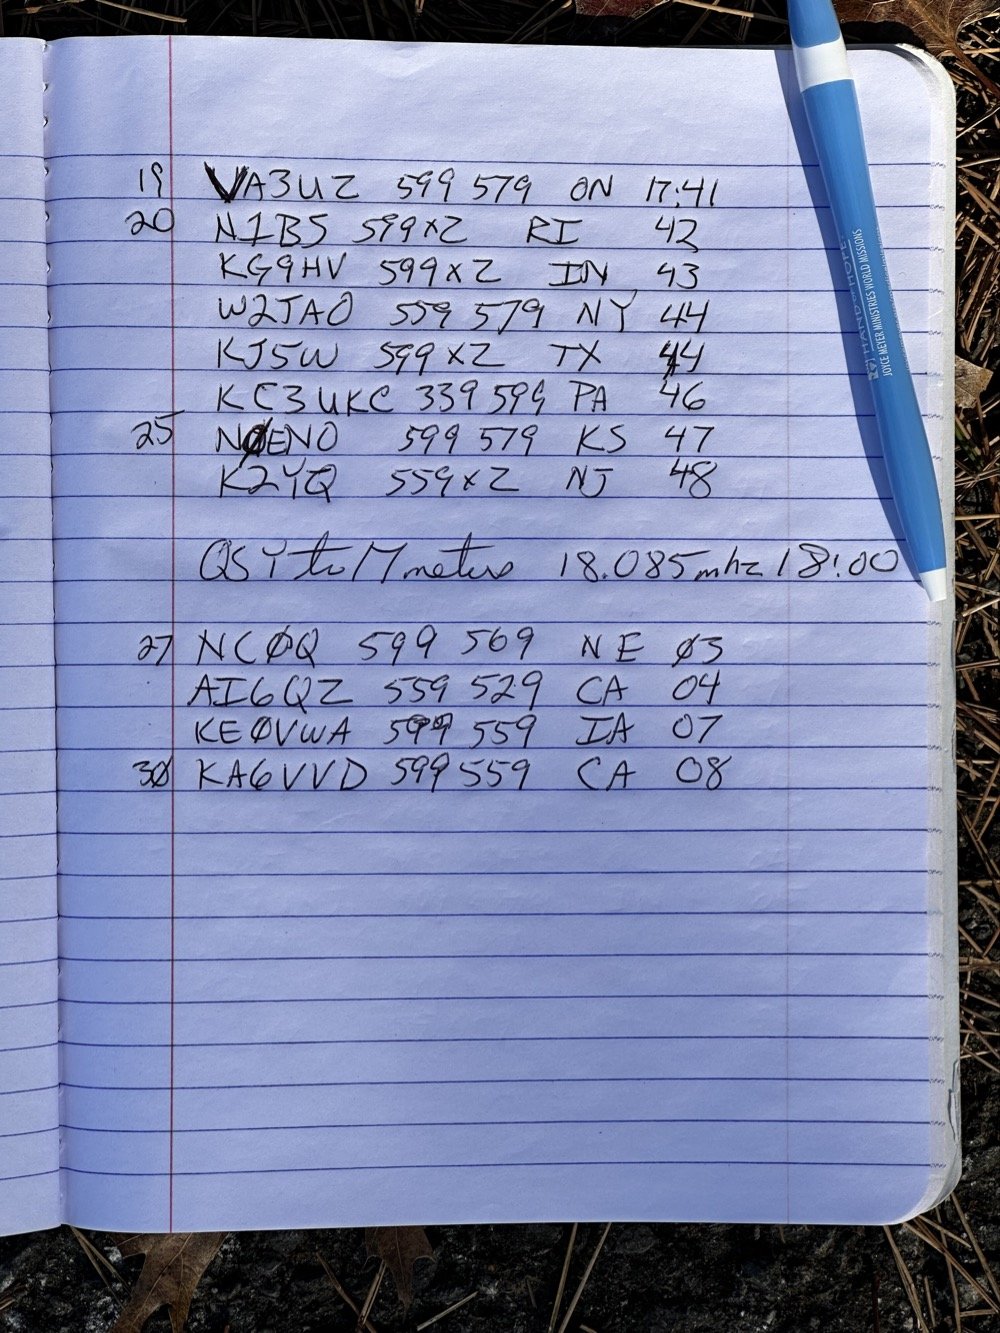 19 VA3UZ 599 579 ON 17:41
20 N1BS 599x2 RI 42
KG9HV 599x2 IN 43
W2JAO 559 579 NY 44
KJ5W 599x2 TX 44
KC3UKC 339 599 PA 46
25 NØENO 599 579 KS 47
K2YQ 559x2 NJ 48
QSY to 17 meters 18.085mhz 18:00
27 NCØQ 599 569 NE Ø3
AI6QZ 559 529 CA 04
KEØVWA 599 559 IA 07
3Ø KA6VVD 599 559 CA 08
HAND OF HOPE
JOYCE MEYER MINISTRIES WORLD MISSIONS